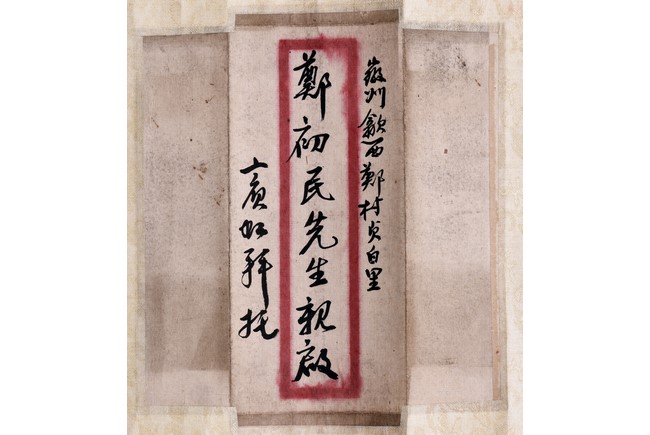 徽州歙西鄭村貞白里
鄭初民先生親啟
賓虹拜托